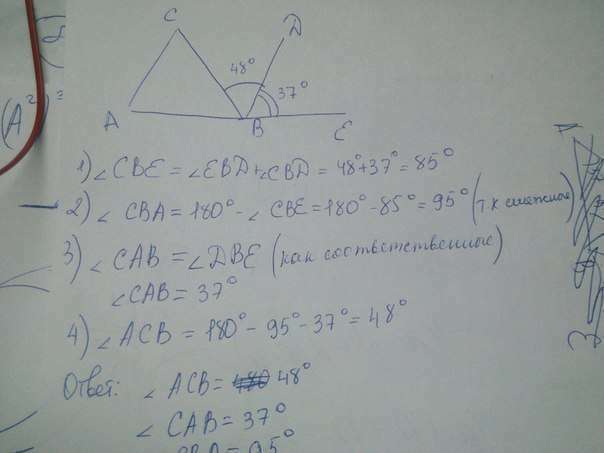 C
D
48°
37°
A
B
E
(A²)=
1) ∠CBE = ∠EBD + ∠CBD = 48°+37° = 85°
2) ∠CBA = 180° - ∠CBE = 180° - 85° = 95° (т к смежные)
3) ∠CAB = ∠DBE (как соответственные)
∠CAB = 37°
4) ∠ACB = 180° - 95° - 37° = 48°
Ответ: ∠ACB = 48°
∠CAB = 37°
∠CBA = 95°